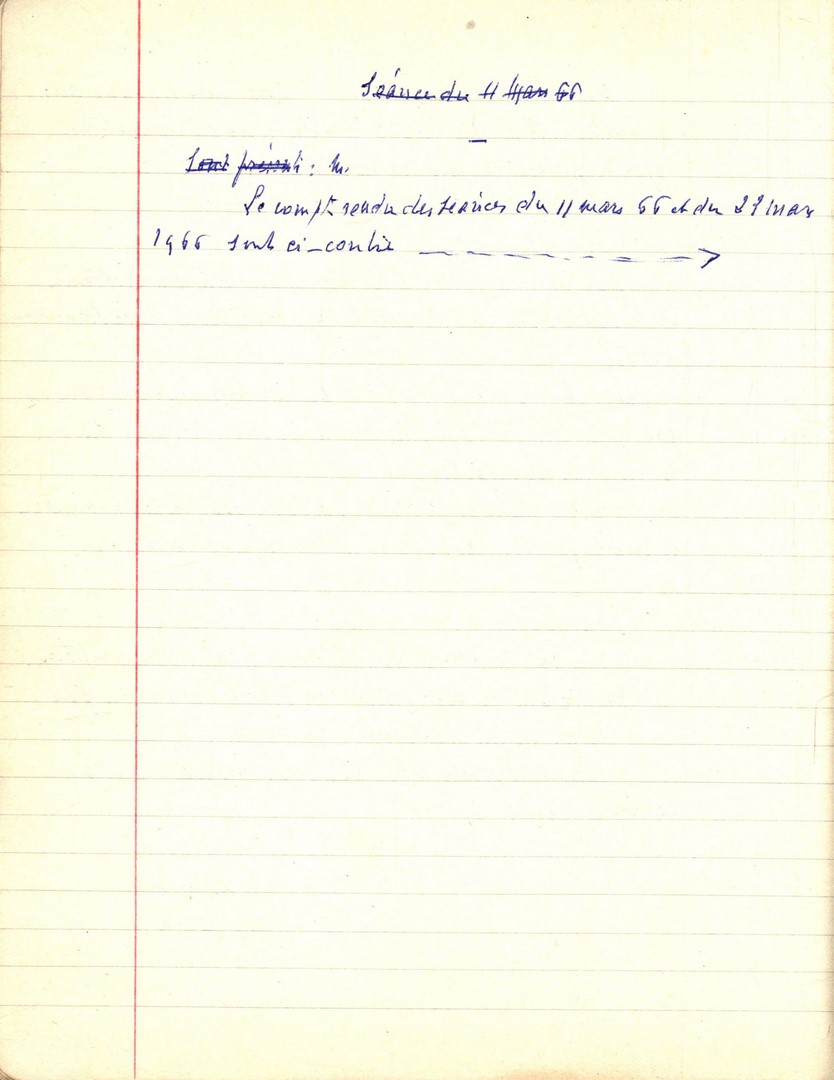 Séance du 11 Mars 66
Sont présents : M.
Le compt rendu des séances du 11 mars 66 et du 29 mars
1966 sont ci-contre